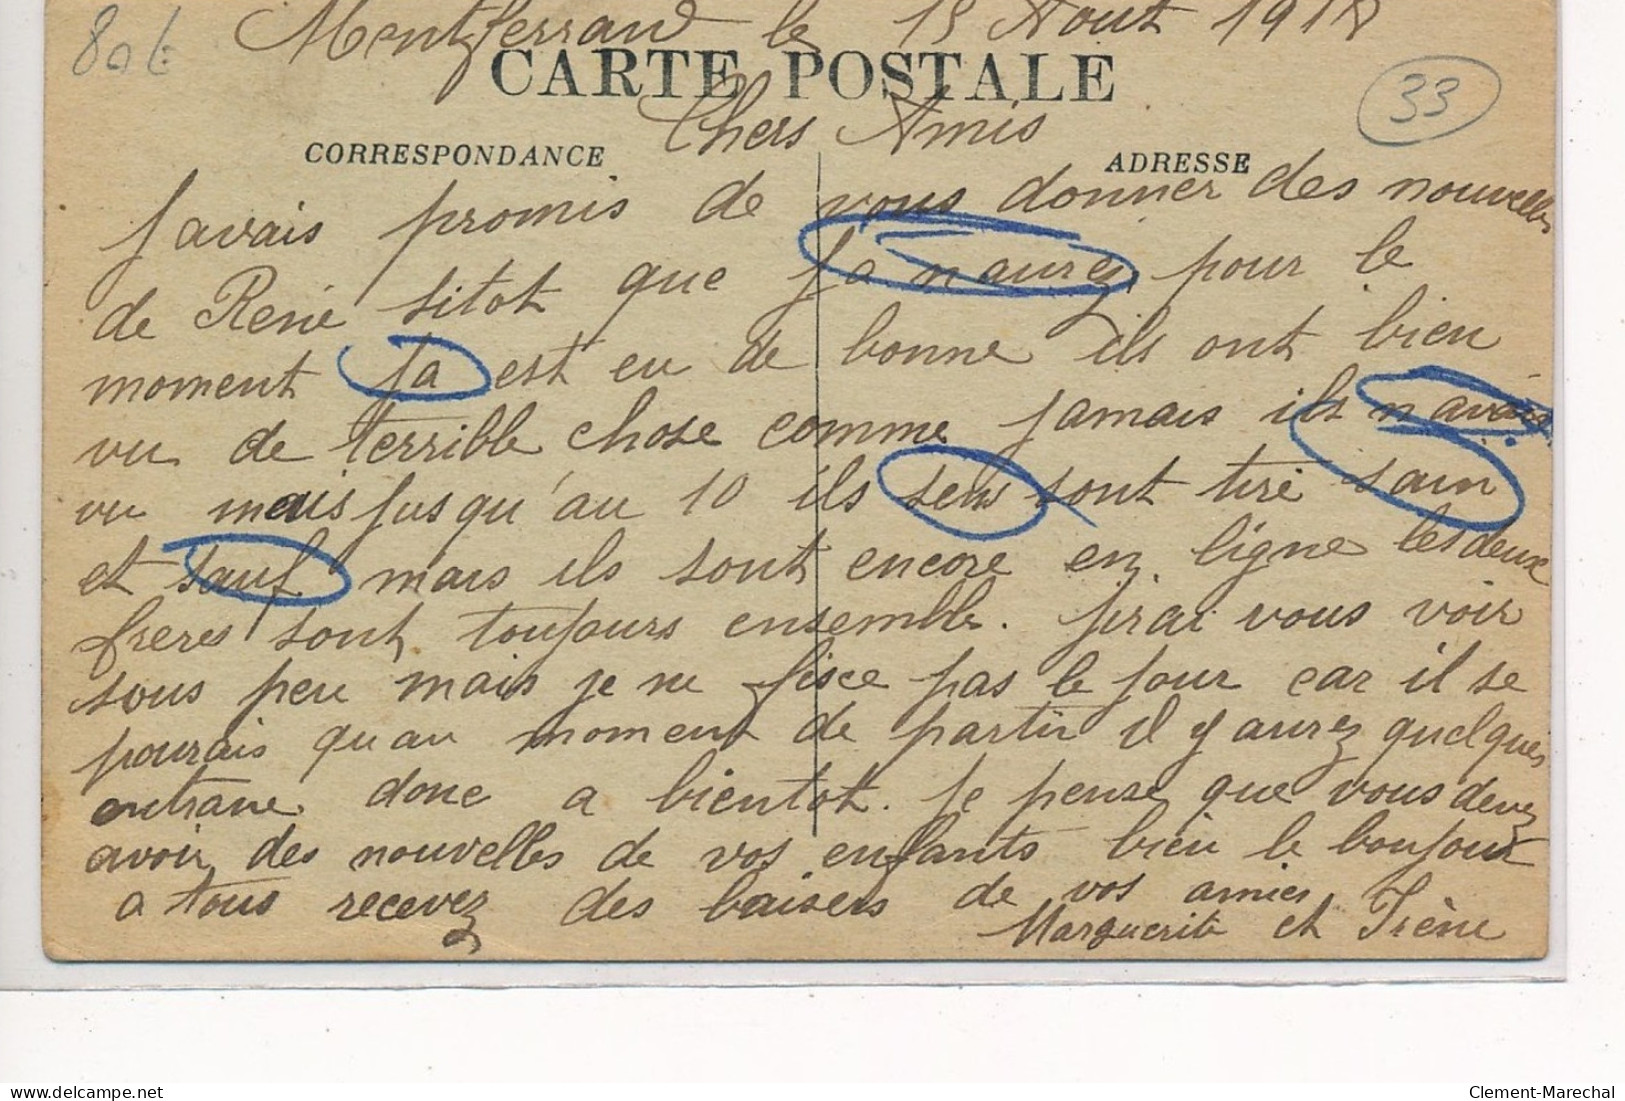 80 t
Montferrand le 15 Aout 1918
CARTE POSTALE
33
Chers Amis
CORRESPONDANCE
ADRESSE
Javais promis de vous donner des nouvelles
de René sitot que Ja naurez pour le
moment Ja est eu de bonne ils ont bien
vu de terrible chose comme jamais ils navais
vu mais jusqu'au 10 ils sens sont tiré sain
et sauf mais ils sont encore en ligne les deux
frères sont toujours ensemble. Jirai vous voir
sous peu mais je ne fisce pas le jour car il se
pourais quau moment de partir il y aurez quelques
entrave donc a bientot. Je pense que vous devez
avoir des nouvelles de vos enfants bien le bonjour
a tous recevez des baisers de vos amies
Marguerite et Irène
www.delcampe.net
Clement-Marechal